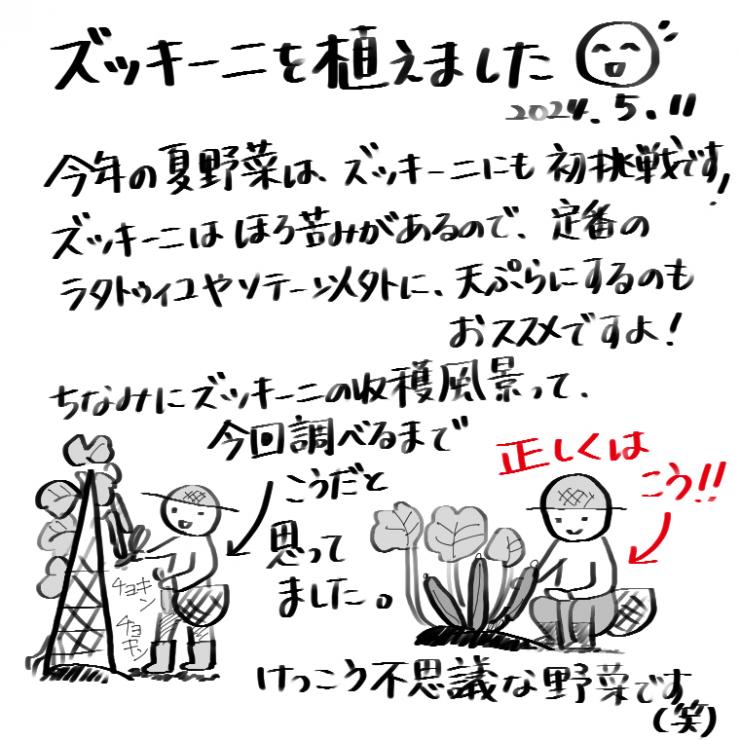 ズッキーニを植えました
2024.5.11
今年の夏野菜は、ズッキーニにも初挑戦です!
ズッキーニはほろ苦みがあるので、定番の
ラタトゥイユやソテー以外に、天ぷらにするのも
おススメですよ!
ちなみにズッキーニの収穫風景って、
今回調べるまで
こうだと
思って
ました。
チョキン
チョキン
正しくは
こう!!
けっこう不思議な野菜です
(笑)